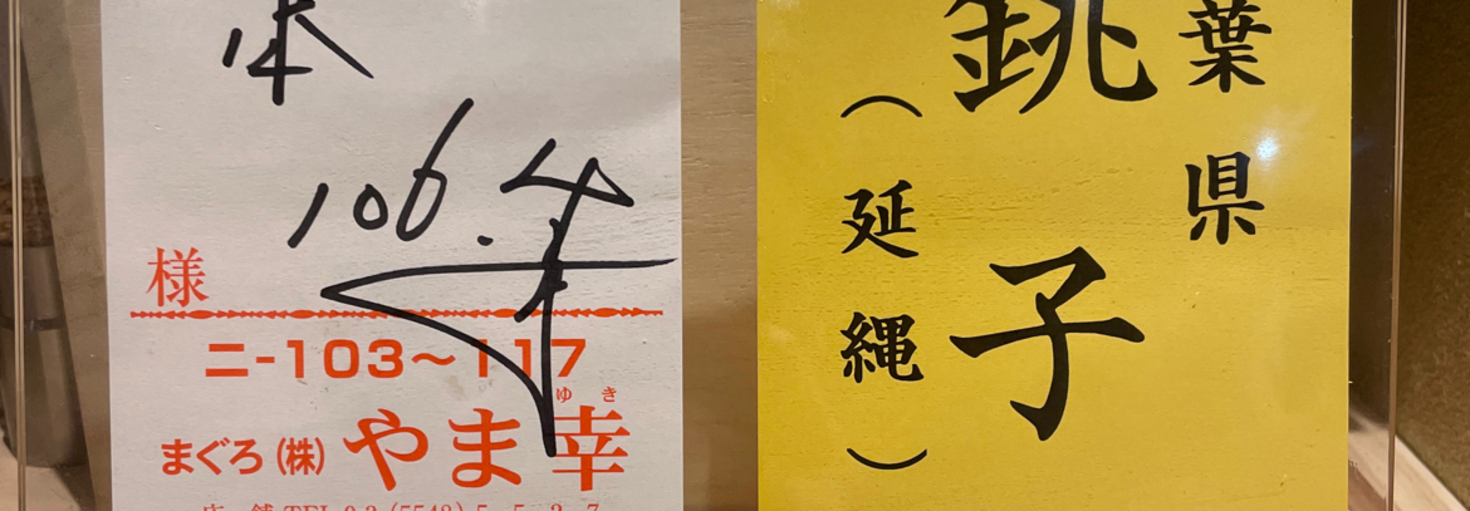 106.4
様
ニ-103〜117
ゆき
まぐろ(株)やま幸
葉県
銚子
(延縄)